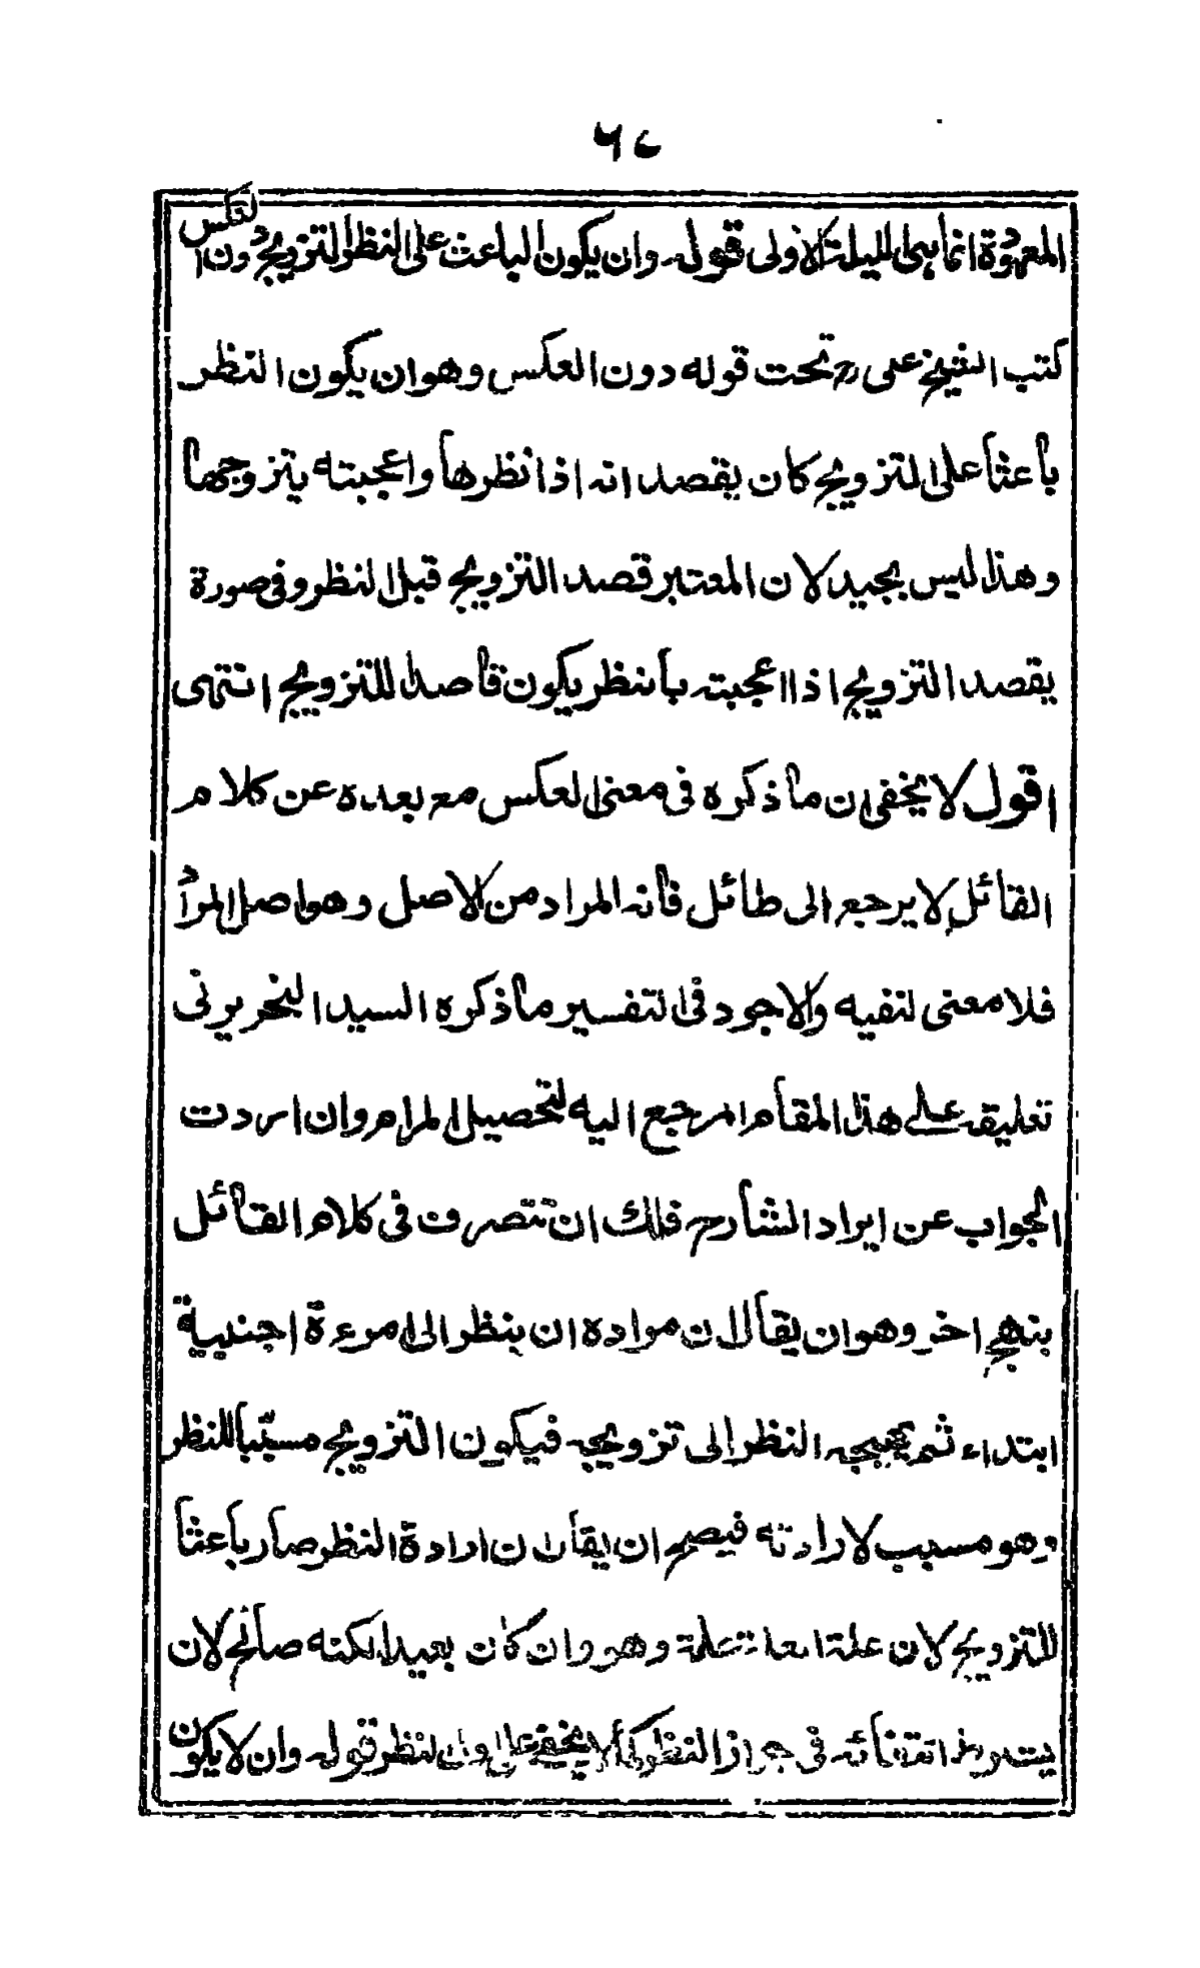 ٦٨
المعهودة انما هى الليلة الاولى قوله وان يكون الباعث على النظر التزويج دون العكس
كتب الشيخ على رح تحت قوله دون العكس وهو ان يكون النظر
باعثا على التزويج كان يقصد انه اذا نظرها واعجبته يتزوجها
وهذا ليس بجيد لان المعتبر قصد التزويج قبل النظر وفى صورة
يقصد التزويج اذا اعجبته بالنظر يكون قاصدا للتزويج انتهى
اقول لا يخفى ان ما ذكره فى معنى العكس مع بعده عن كلام
القائل لا يرجع الى طائل فانه المراد من الاصل وهو اصل المراد
فلا معنى لنفيه والاجود فى التفسير ما ذكره السيد النحرير فى
تعليقه على هذا المقام ارجع اليه لتحصيل المرام وان اردت
الجواب عن ايراد الشارح فلك ان تتصرف فى كلام القائل
بنهج اخر وهو ان يقال ان مراده ان ينظر الى امرءة اجنبية
ابتداء ثم يهيجه النظر الى تزويجه فيكون التزويج مسببا للنظر
وهو مسبب لارادته فيصح ان يقال ان ارادة النظر صار باعثا
للتزويج لان علة العلة علة وهو وان كان بعيدا لكنه صالح لان
فى جواز النظر كما لا يخفى على اولى النظر قوله وان لا يكون